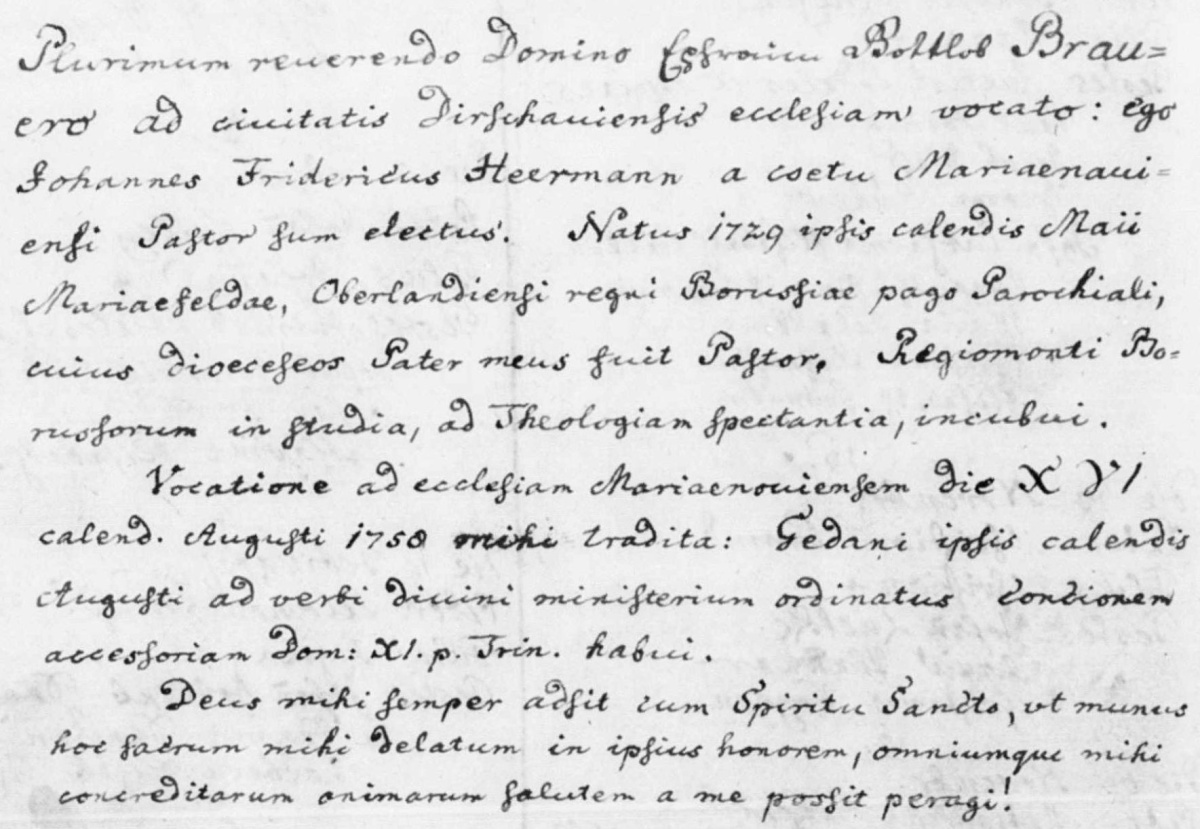 Plurimum reuerendo Domino Ephraim Gottlob Brau=
ero ad ciuitatis Dirschauiensis ecclesiam vocato: ego
Johannes Fridericus Heermann a coetu Mariaenoui-
ensi Pastor sum electus. Natus 1729 ipsis calendis Maii
Mariaefeldae, Oberlandiensi regni Borussiae pago Parochiali,
cuius dioeceseos Pater meus fuit Pastor. Regiomonti Bo-
russorum in studia, ad Theologiam spectantia, incubui.
Vocatione ad ecclesiam Mariaenouiensem die XVI
calend. Augusti 1758 mihi tradita: Gedani ipsis calendis
Augusti ad verbi diuini ministerium ordinatus concionem
accessoriam Dom: XI. p. Trin. habui.
Deus mihi semper adsit cum Spiritu Sancto, vt munus
hoc sacrum mihi delatum in ipsius honorem, omniumque mihi
concreditarum animarum salutem a me possit peragi!